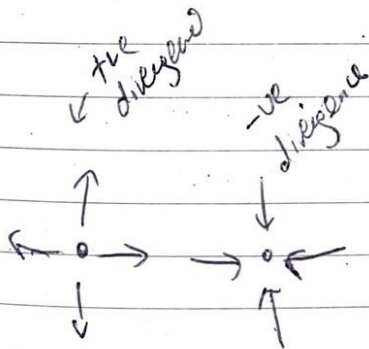 +ve
divergend
-ve
divergence